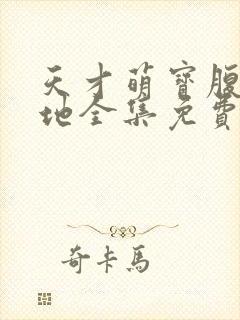 天才萌寶腹
地全集免費
奇卡馬